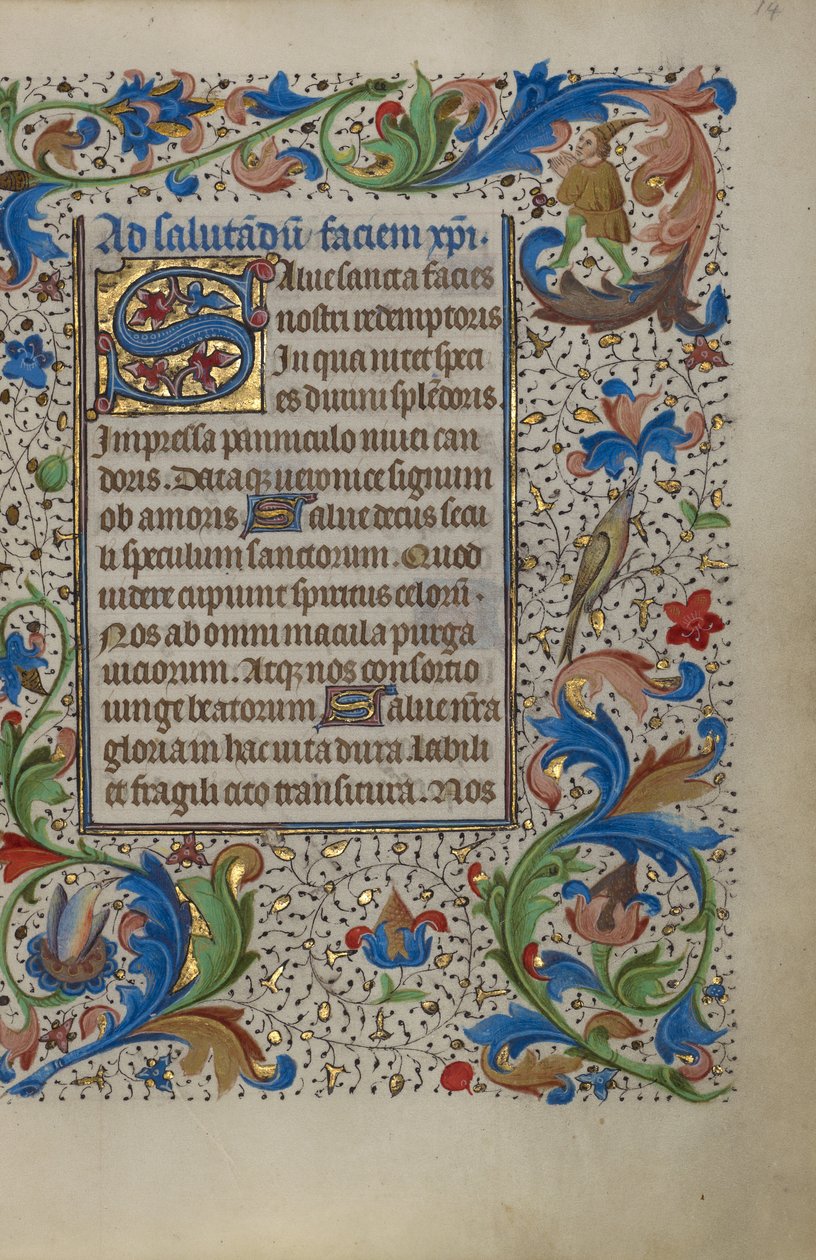 14
Ad salutādū faciem xp̄i.
Salue sancta facies
nostri redemptoris
In qua nitet speci
es diuini splēdoris.
Impressa panniculo niuei can
doris. Dataqꝫ ueronice signum
ob amoris Salue decus secu
li speculum sanctorum. Quod
uidere cupiunt spiritus celorū.
Nos ab omni macula purga
uiciorum. Atqꝫ nos consortio
iunge beatorum Salue nr̄a
gloria in hac uita dura. Labili
et fragili cito transitura. Nos